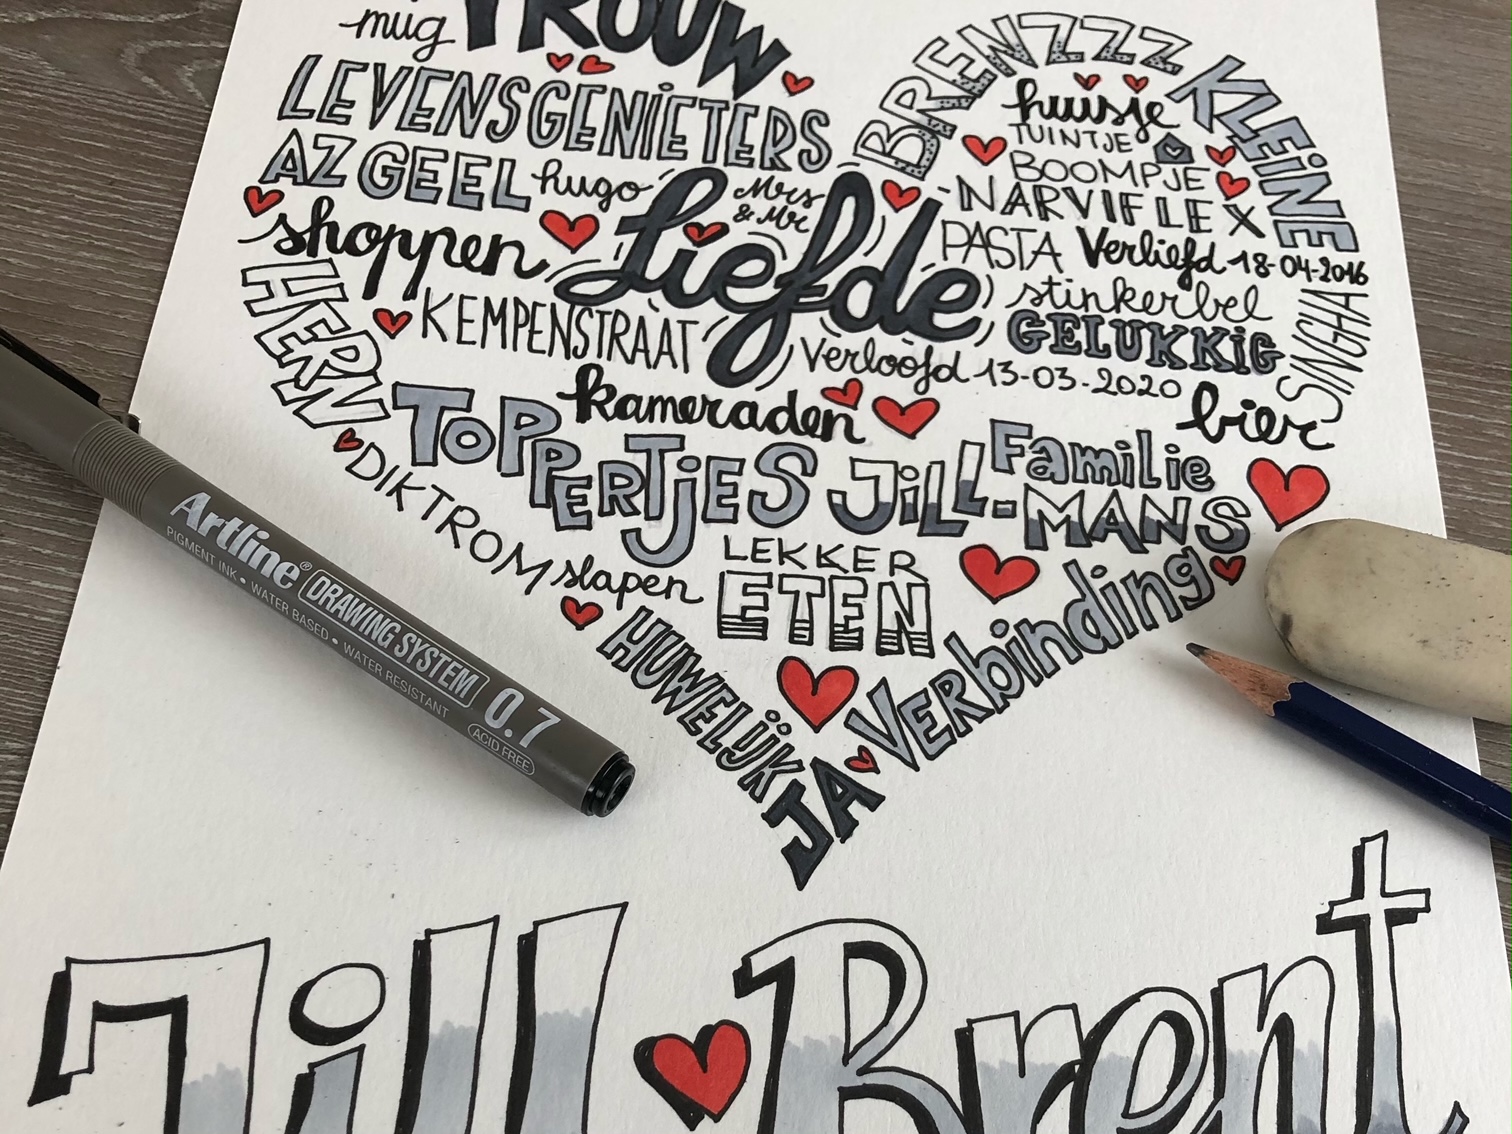 mug TROUW
LEVENSGENIETERS
AZ GEEL hugo Mrs
& Mr
shoppen Liefde
HERN
KEMPENSTRAAT
kameraden
TOPPERTJES
DIKTROM slapen
BRENZZZ KLEINE
huisje
TUINTJE
BOOMPJE
NARVIFLEX
PASTA Verliefd 18-04-2016
stinkerbel
GELUKKiG SINGHA
Verloofd 13-03-2020
bier
JiLL-MANS Familie
LEKKER
ETEN
HUWELIJK
JA Verbinding
Jill Brent
Artline® DRAWING SYSTEM 0.7
PIGMENT INK • WATER BASED • WATER RESISTANT ACID FREE